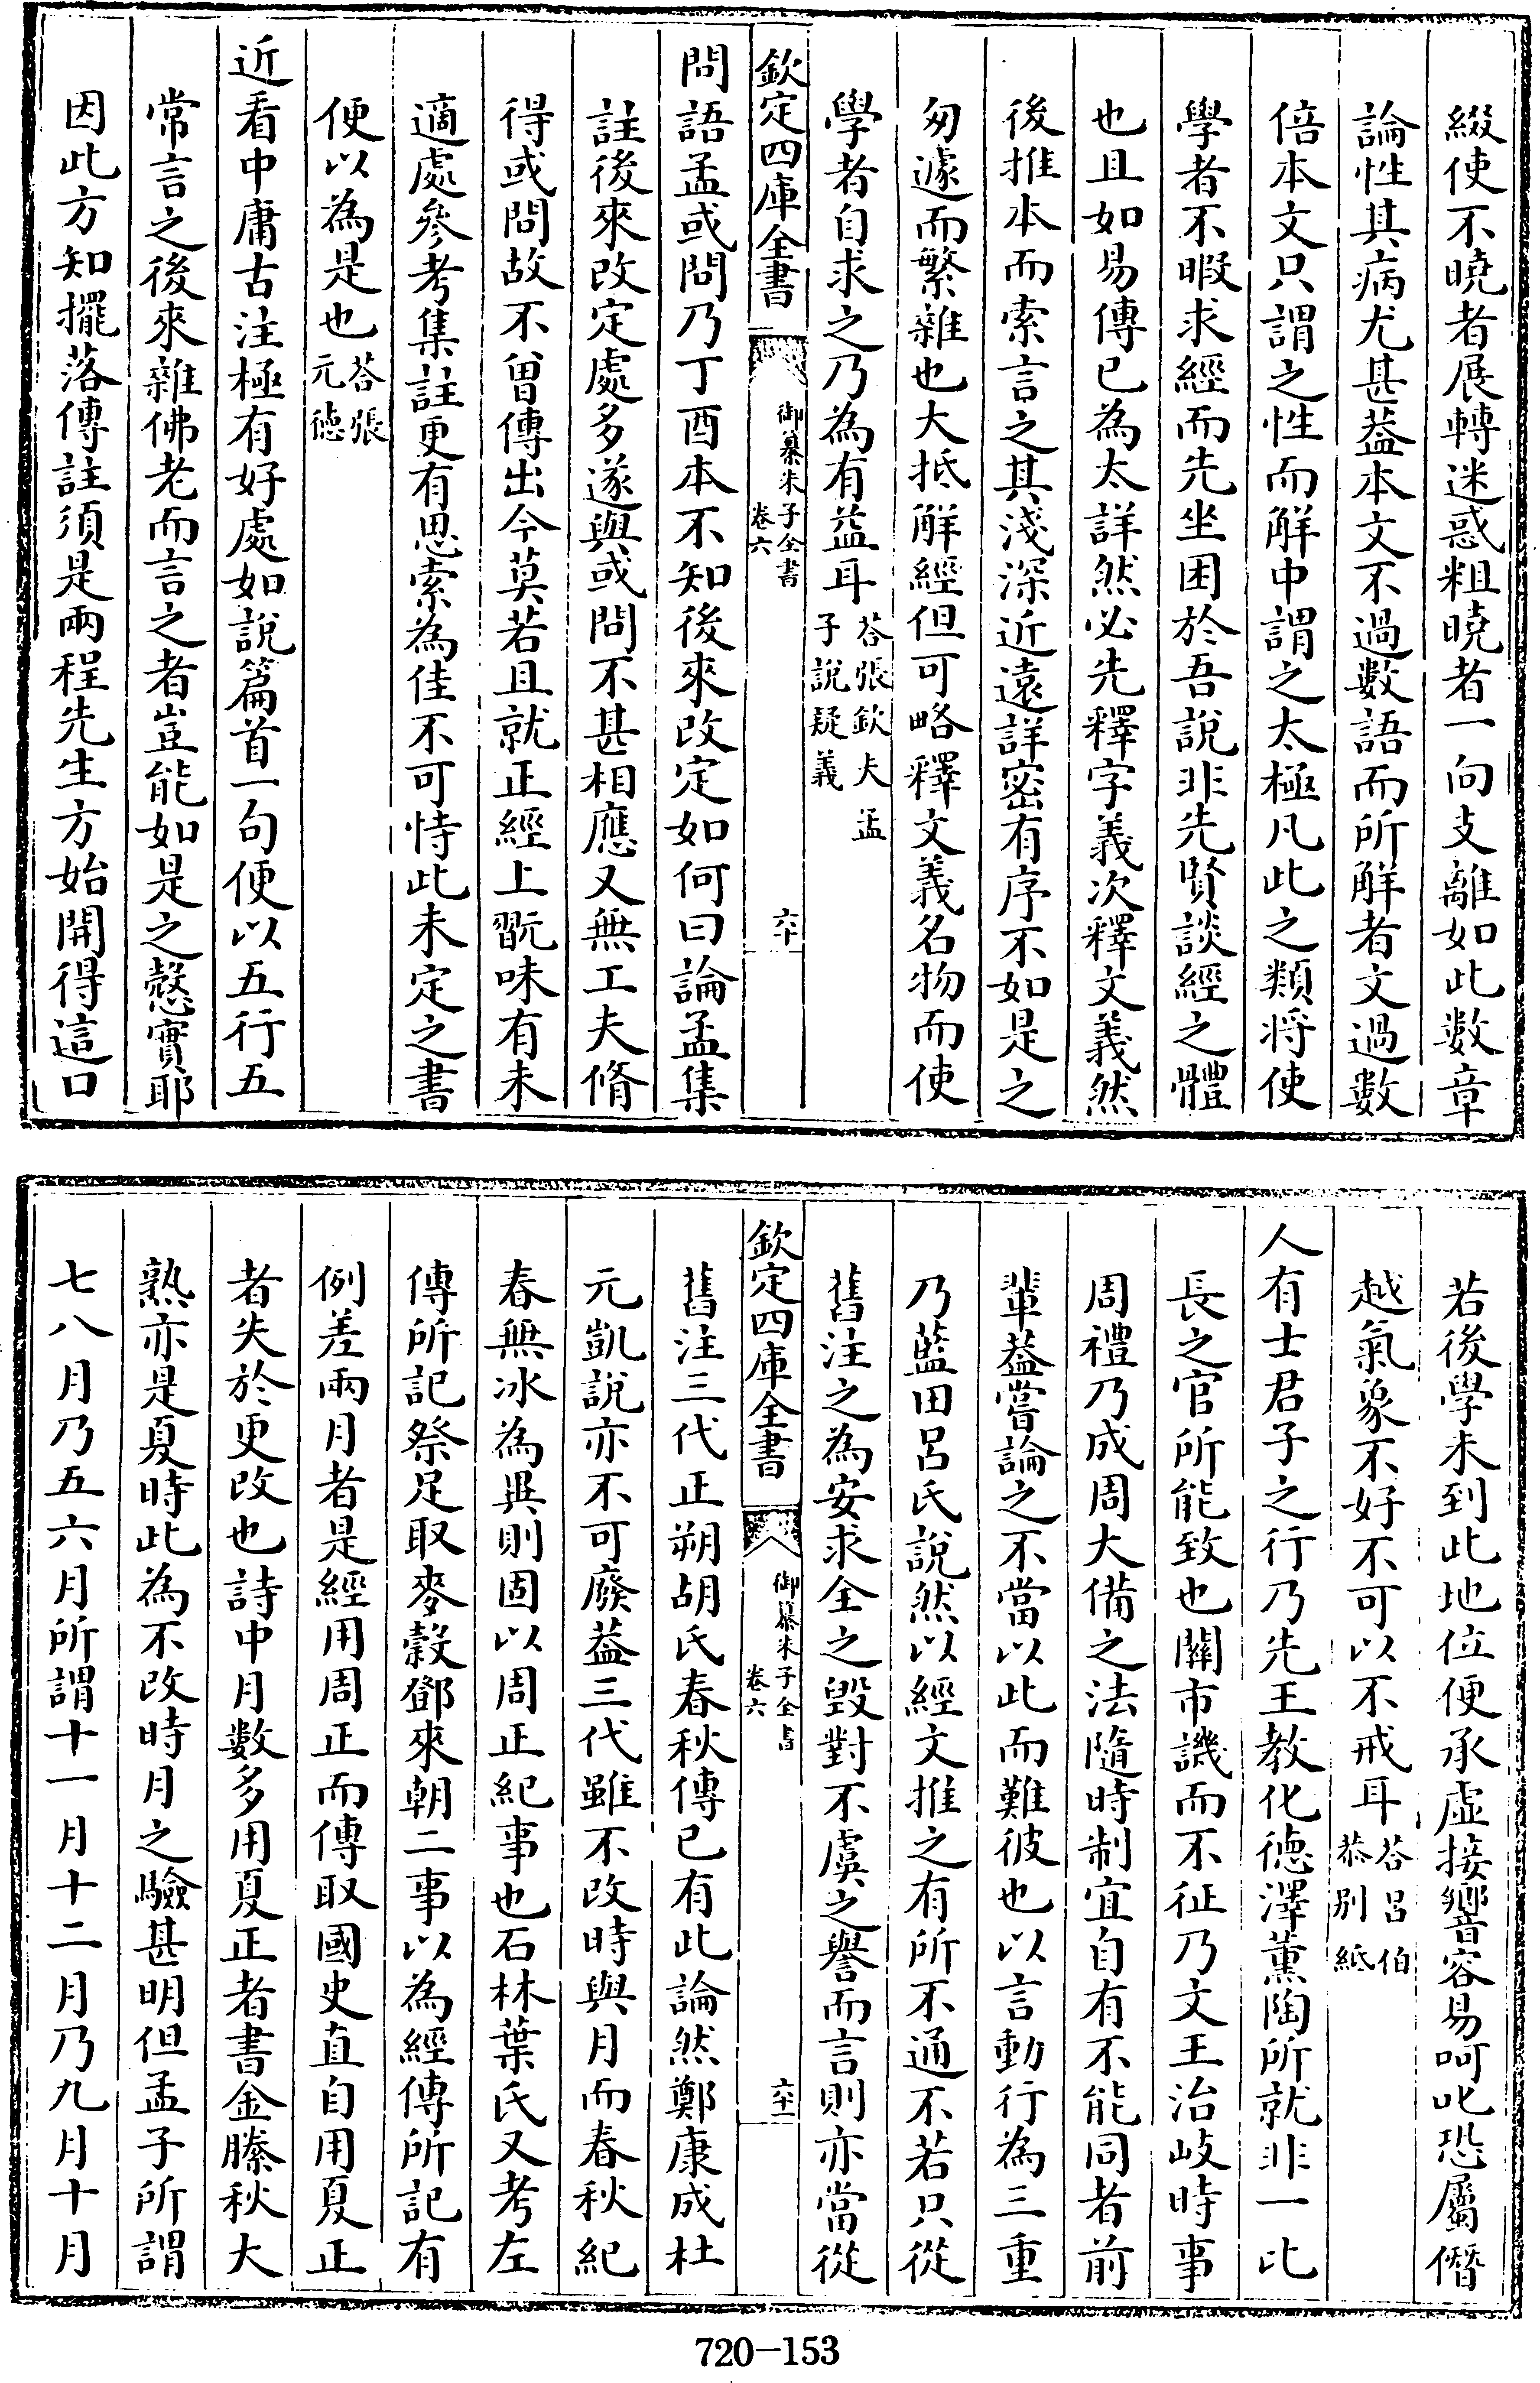 綴使不曉者展轉迷惑粗曉者一向支離如此數章
論性其病尤甚葢本文不過數語而所解者文過數
倍本文只謂之性而解中謂之太極凡此之類将使
學者不暇求經而先坐困於吾說非先賢談經之體
也且如易傳已為太詳然必先釋字義次釋文義然
後推本而索言之其淺深近遠詳密有序不如是之
匆遽而繁雜也大抵解經但可略釋文義名物而使
學者自求之乃為有益耳荅張欽夫孟
子說疑義
欽定四庫全書
御纂朱子全書
卷六
六十
問語孟或問乃丁酉本不知後來改定如何曰論孟集
註後來改定處多遂與或問不甚相應又無工夫脩
得或問故不曾傳出今莫若且就正經上翫味有未
適處參考集註更有思索為佳不可恃此未定之書
便以為是也荅張
元德
近看中庸古注極有好處如說篇首一句便以五行五
常言之後來雜佛老而言之者豈能如是之慤實耶
因此方知擺落傳註須是兩程先生方始開得這口
若後學未到此地位便承虛接響容易呵叱恐屬僭
越氣象不好不可以不戒耳荅呂伯
恭別紙
人有士君子之行乃先王教化德澤薰陶所就非一比
長之官所能致也關市譏而不征乃文王治岐時事
周禮乃成周大備之法隨時制宜自有不能同者前
輩葢嘗論之不當以此而難彼也以言動行為三重
乃藍田呂氏說然以經文推之有所不通不若只從
舊注之為安求全之毀對不虞之譽而言則亦當從
欽定四庫全書
御纂朱子全書
卷六
六十一
舊注三代正朔胡氏春秋傳已有此論然鄭康成杜
元凱說亦不可廢葢三代雖不改時與月而春秋紀
春無冰為異則固以周正紀事也石林葉氏又考左
傳所記祭足取麥穀鄧來朝二事以為經傳所記有
例差兩月者是經用周正而傳取國史直自用夏正
者失於更改也詩中月數多用夏正者書金縢秋大
熟亦是夏時此為不改時月之驗甚明但孟子所謂
七八月乃五六月所謂十一月十二月乃九月十月
720-153